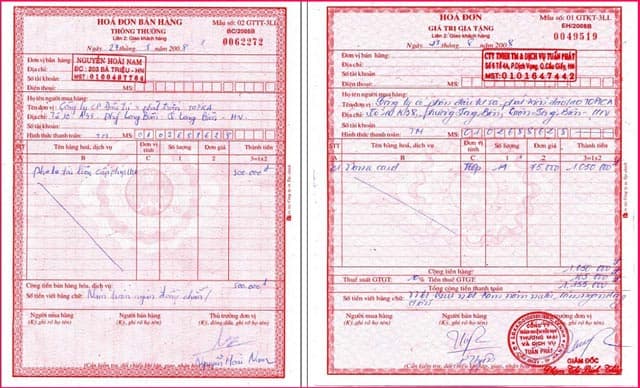 HOÁ ĐƠN BÁN HÀNG
THÔNG THƯỜNG
Liên 2: Giao khách hàng
Mẫu số: 02 GTTT-3LL
BC/2008B
0062272
Ngày 29 tháng 5 năm 2008
Đơn vị bán hàng:
NGUYỄN HOÀI NAM
Địa chỉ:
ĐC: 203 BÀ TRIỆU - HN
Số tài khoản:
MST: 0100487764
Điện thoại:
MS:
Họ tên người mua hàng:
Tên đơn vị: Công ty CP Đầu tư & phát triển TOPICA
Địa chỉ: Tổ 10 Phg Long Biên Q Long Biên - HN
Số tài khoản:
Hình thức thanh toán: TM
MS:
STT
Tên hàng hoá, dịch vụ
Đơn vị tính
Số lượng
Đơn giá
Thành tiền
A
B
C
1
2
3=1x2
500.000đ
Cộng tiền bán hàng hóa, dịch vụ:
500.000đ
Số tiền viết bằng chữ: Năm trăm ngàn đồng chẵn /
Người mua hàng
(Ký, ghi rõ họ tên)
Người bán hàng
(Ký, ghi rõ họ tên)
Thủ trưởng đơn vị
(Ký, đóng dấu, ghi rõ họ tên)
Nguyễn Hoài Nam
(Cần kiểm tra, đối chiếu khi lập, giao, nhận hóa đơn)
HOÁ ĐƠN
GIÁ TRỊ GIA TĂNG
Liên 2: Giao khách hàng
Mẫu số: 01 GTKT-3LL
EH/2008B
0049519
năm 2008
Đơn vị bán hàng:
CTY TNHH TM & DỊCH VỤ TUẤN PHÁT
Địa chỉ:
Số 6 Tổ 4A, P.Dịch Vọng, Q.Cầu Giấy, HN
Số tài khoản:
MST: 0101647442
Điện thoại:
MS:
Họ tên người mua hàng:
Tên đơn vị: Công ty cổ phần đầu tư và phát triển đào tạo TOPICA
Địa chỉ: Phường Long Biên, Quận Long Biên - HN
Số tài khoản:
Hình thức thanh toán: TM
MS:
STT
Tên hàng hoá, dịch vụ
Đơn vị tính
Số lượng
Đơn giá
Thành tiền
A
B
C
1
2
3=1x2
card
Hộp
75.000
1.050.000đ
Cộng tiền hàng:
1.050.000đ
Thuế suất GTGT: 10% Tiền thuế GTGT:
105.000đ
Tổng cộng tiền thanh toán
1.155.000đ
Số tiền viết bằng chữ: Một triệu một trăm năm mươi lăm ngàn đồng
Người mua hàng
(Ký, ghi rõ họ tên)
Người bán hàng
(Ký, ghi rõ họ tên)
Thủ trưởng đơn vị
(Ký, đóng dấu, ghi rõ họ tên)
CÔNG TY
TRÁCH NHIỆM HỮU HẠN
THƯƠNG MẠI
VÀ DỊCH VỤ
TUẤN PHÁT
GIÁM ĐỐC
(Cần kiểm tra, đối chiếu khi lập, giao, nhận hóa đơn)